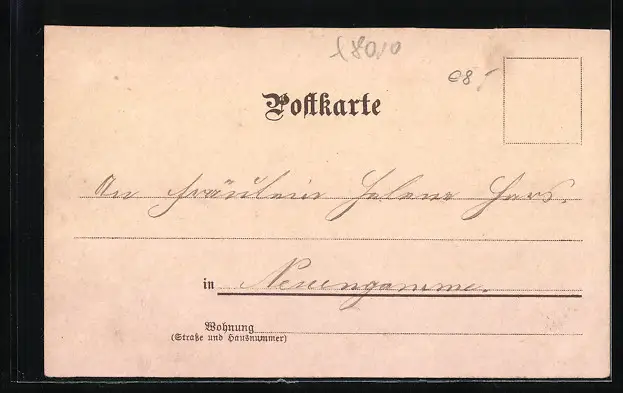 €8,-
Postkarte
An Fräulein Helene Hars.
in Neuengamme.
Wohnung
(Straße und Hausnummer)